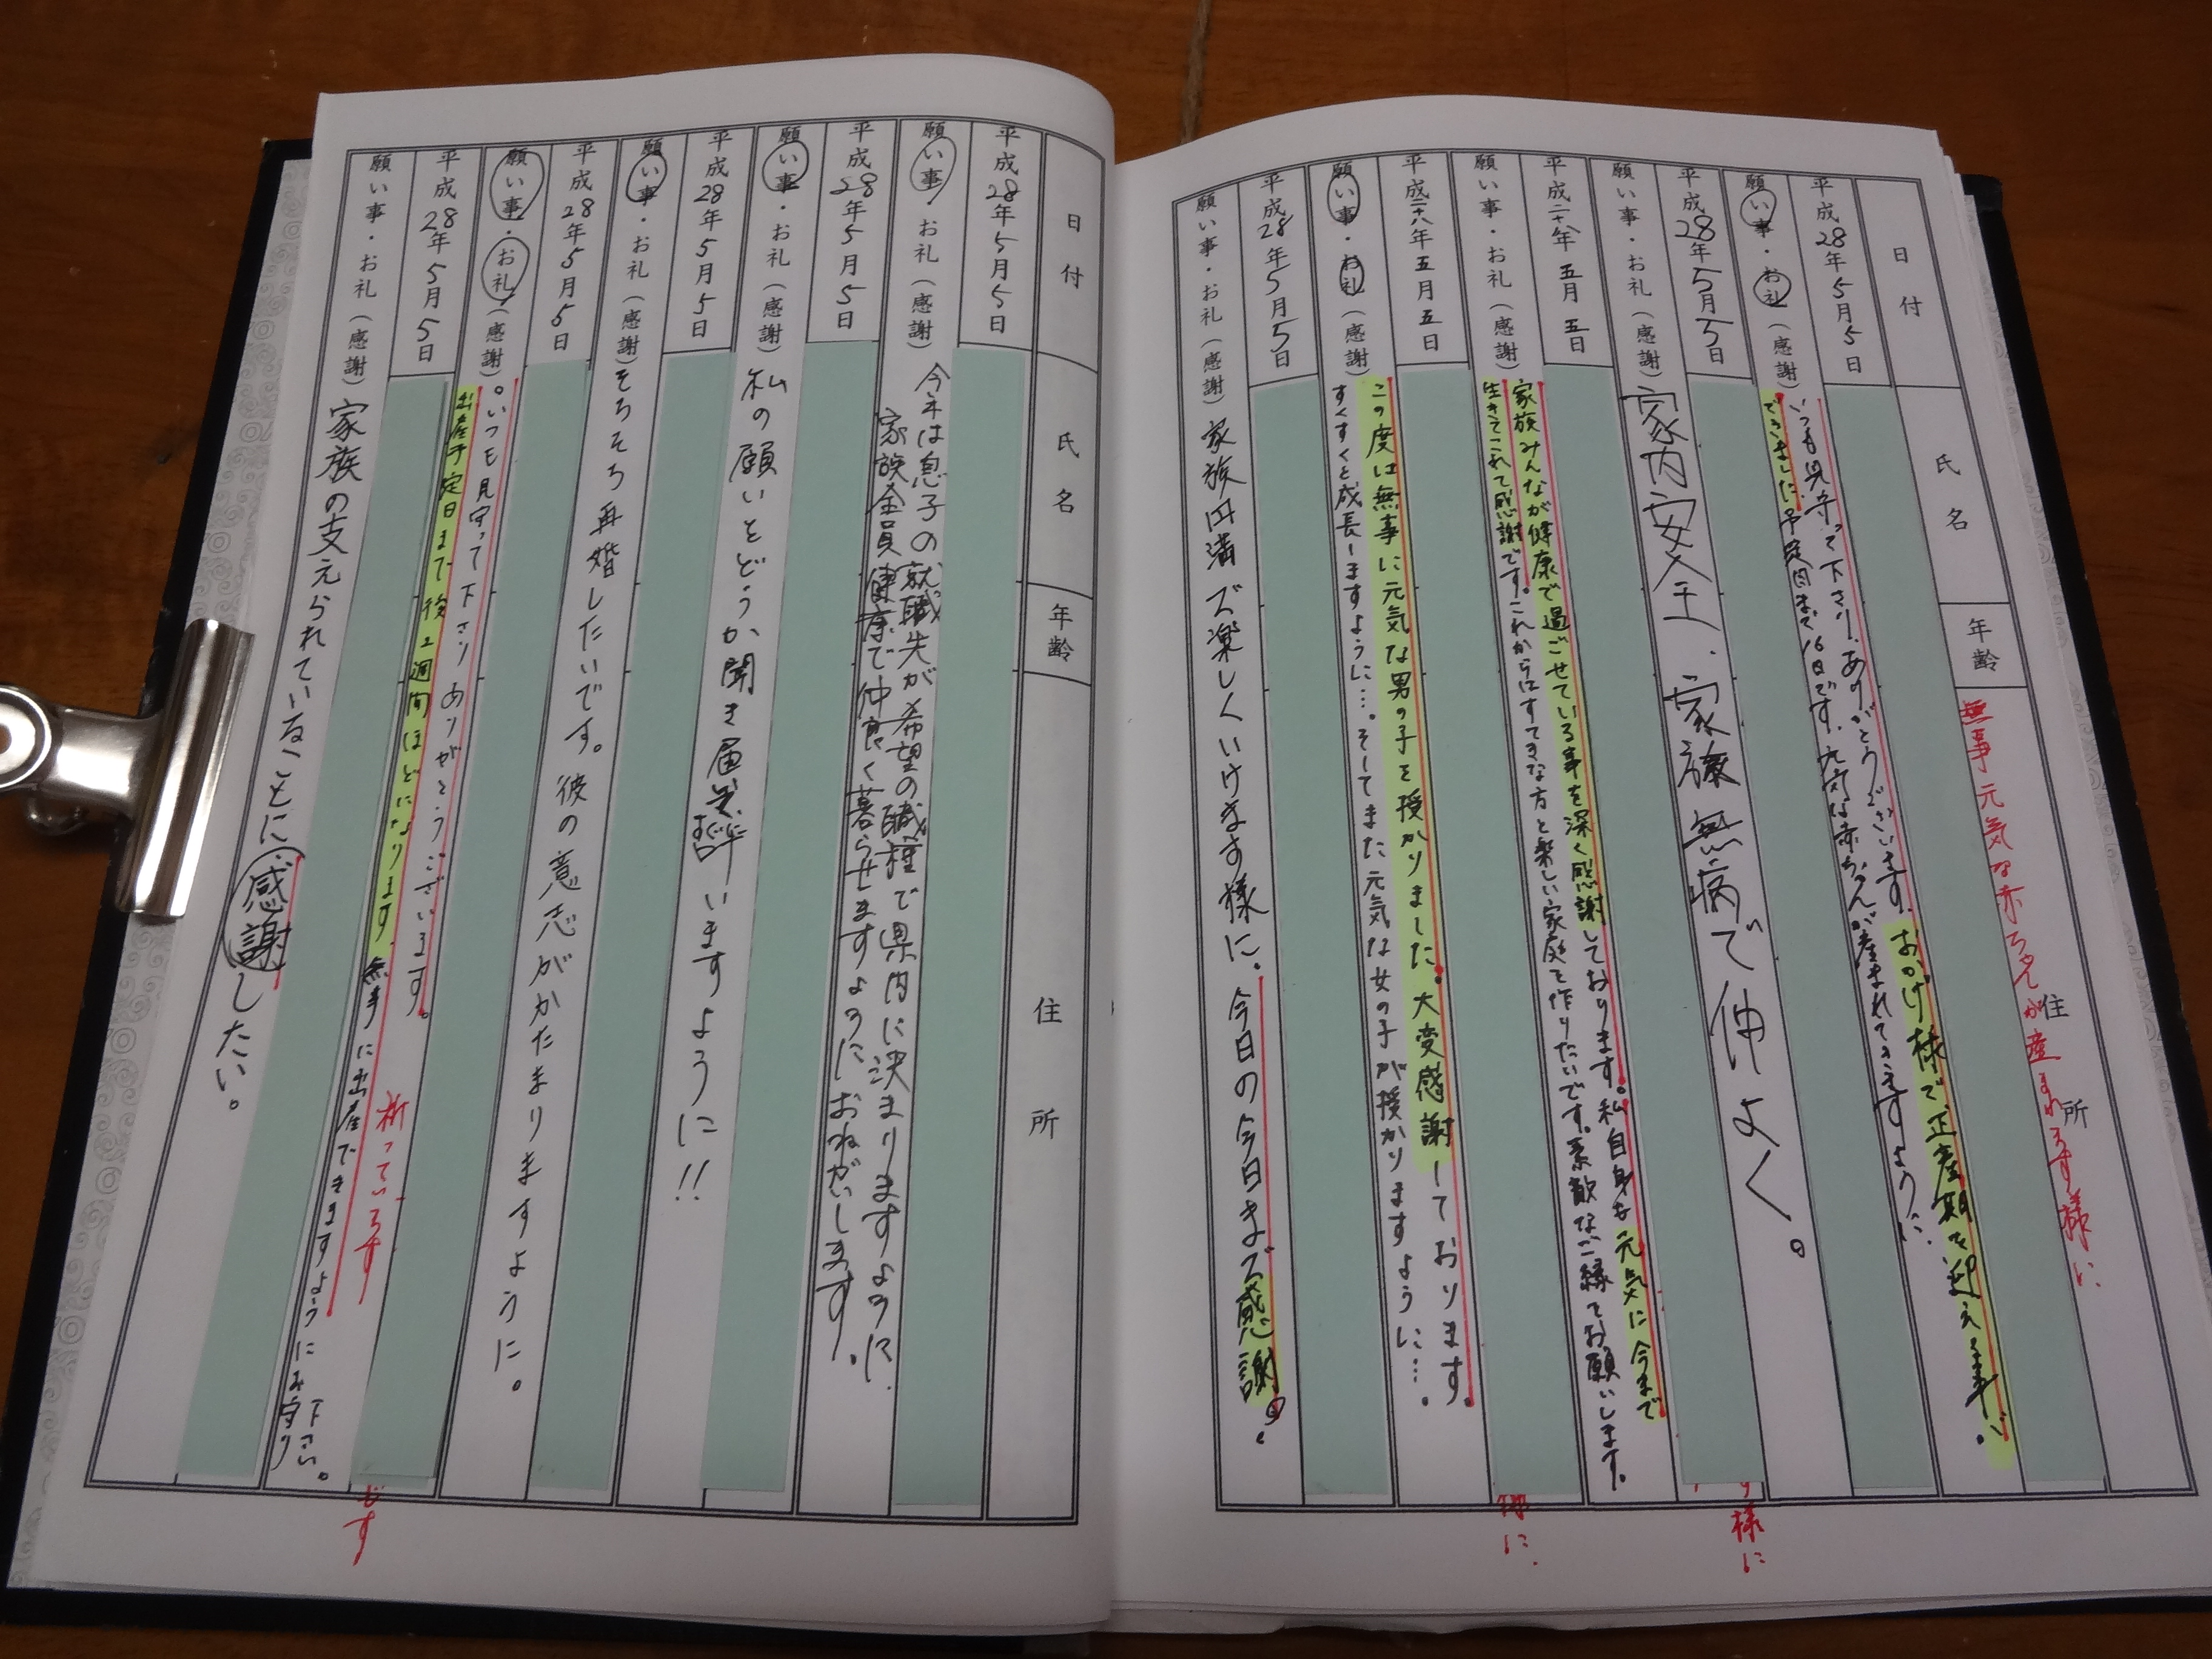 日付 氏名 年齢 住所
無事元気な赤ちゃんが産まれます様に
平成28年5月5日
願い事・お礼(感謝)
いつも見守って下さり、ありがとうございます。おかげ様で正産期を迎える事が
できました。予定日まで16日です。元気な赤ちゃんが産まれてきますように。
平成28年5月5日
願い事・お礼(感謝)
家内安全、家族無病で仲よく。
平成二十八年五月五日
願い事・お礼(感謝)
家族みんなが健康で過ごせている事を深く感謝しております。私自身も元気に今まで
生きてこれて感謝です。これからはすてきな方と楽しい家庭を作りたいです。素敵なご縁をお願いします。
平成二十八年五月五日
願い事・お礼(感謝)
この度は無事に元気な男の子を授かりました。大変感謝しております。
すくすくと成長しますように…。そしてまた元気な女の子が授かりますように…。
平成28年5月5日
願い事・お礼(感謝)
家族円満で楽しくいけます様に。今日の今日まで感謝
様に
様に
日付 氏名 年齢 住所
平成28年5月5日
願い事・お礼(感謝)
今年は息子の就職先が希望の職種で県内に決まりますように
家族全員健康で仲良く暮らせますようにおねがいします。
平成28年5月5日
願い事・お礼(感謝)
私の願いをどうか聞き届け いますように!!
平成28年5月5日
願い事・お礼(感謝)
そろそろ再婚したいです。彼の意志がかたまりますように。
平成28年5月5日
願い事・お礼(感謝)
。いつも見守って下さりありがとうございます。
出産予定日まで後2週間ほどになります。無事に出産できますようにお守り下さい。
祈っています
です
平成28年5月5日
願い事・お礼(感謝)
家族の支えられていることに感謝したい。